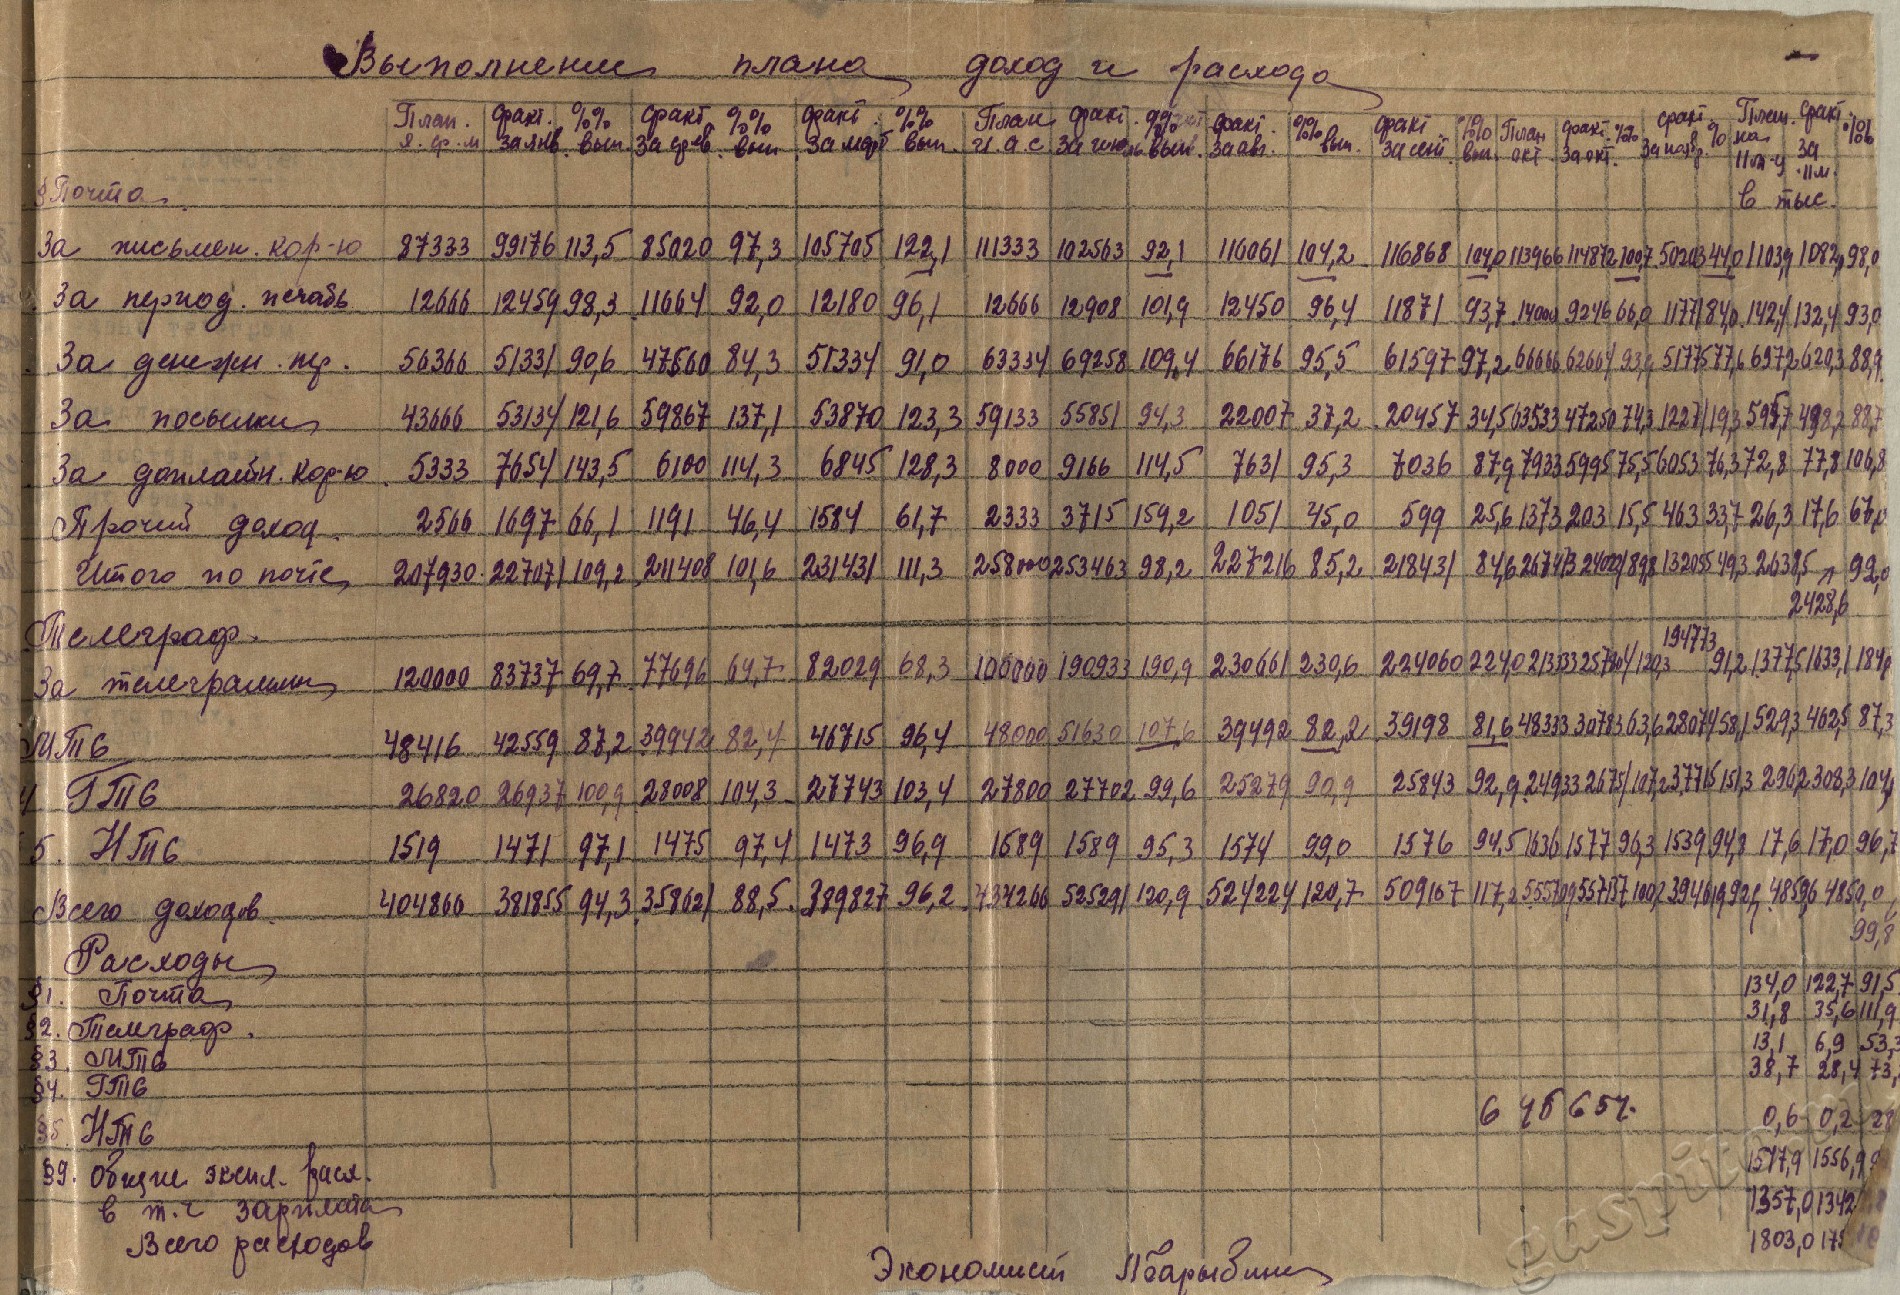 Выполнение плана доход и расхода
План. я.ф.м факт. за янв. %% вып. факт. за фев. %% вып факт. за март %% вып. План и.а.с факт. за июль %% вып. факт. за авг. %% вып. факт за сент. %% вып. План окт факт. за окт. %% факт. за нояб. % План. на 11 м-ц факт за 11 м. %%
в тыс.
§ Почта
За письмен. кор-ю 87333 99176 113,5 85020 97,3 105705 122,1 111333 102563 92,1 116061 104,2 116868 104,0 113966 114872 100,7 50203 44,0 1103,9 1082,0 98,0
За период. печать 12666 12459 98,3 11664 92,0 12180 96,1 12666 12908 101,9 12450 96,4 11871 93,7 14000 9246 66,0 11771 84,0 142,4 132,4 93,0
За денежн. пер. 56366 51331 90,6 47560 84,3 51334 91,0 63334 69258 109,4 66176 95,5 61597 97,2 66666 62664 51775 77,6 697,2 620,3 88,9
За посылки 43666 53134 121,6 59867 137,1 53870 123,3 59133 55851 94,3 22007 37,2 20457 34,5 63533 47250 74,3 12271 19,3 498,2 88,7
За доплатн. кор-ю 5333 7654 143,5 6100 114,3 6845 128,3 8000 9166 114,5 7631 95,3 7036 87,9 7933 5995 75,5 6053 76,3 72,8 77,8 106,8
Прочий доход 2566 1697 66,1 1191 46,4 1584 61,7 2333 3715 159,2 1051 45,0 599 25,6 1373 203 15,5 463 33,7 26,3 17,6 67,0
Итого по почте 207930 227071 109,2 211408 101,6 231431 111,3 258000 253463 98,2 227216 85,2 218431 84,6 267473 89,8 132055 49,3 2638,5 92,0
2428,6
Телеграф.
194773
За телеграммы 120000 83737 69,7 77696 64,7 82029 68,3 100000 190933 190,9 230661 230,6 224060 224,0 213333 120,3 91,2 1377,5 1633,1 184,0
МТС 48416 42559 87,2 39942 82,4 46715 96,4 48000 51630 107,6 39492 82,2 39198 81,6 48333 30783 63,6 28074 58,1 529,3 462,5 87,3
4 ГТС 26820 26937 100,9 28008 104,3 27743 103,4 27800 27702 99,6 25279 90,9 25843 92,9 24933 26751 107,2 37715 151,3 296,2 308,3 104,0
5. НТС 1519 1471 97,1 1475 97,4 1473 96,9 1589 1589 95,3 1574 99,0 1576 94,5 1636 1577 96,3 1539 94,8 17,6 17,0 96,7
Всего доходов 404866 381855 94,3 358621 88,5 389827 96,2 434266 525291 120,9 524224 120,7 509167 117,2 555709 557157 100,2 4859,6 4850,0
99,8
Расходы
§1. Почта 134,0 122,7 91,5
§2. Телеграф. 31,8 35,6 111,9
§3. МТС 13,1 6,9 53,3
§4. ГТС 38,7 28,4 73,
6 45 654.
§5. НТС 0,6 0,2 28
§9. Общие экспл. расх. 1517,9 1556,9
в т.ч зарплата 1357,0 1342
Всего расходов 1803,0
Экономист Лбарыбина